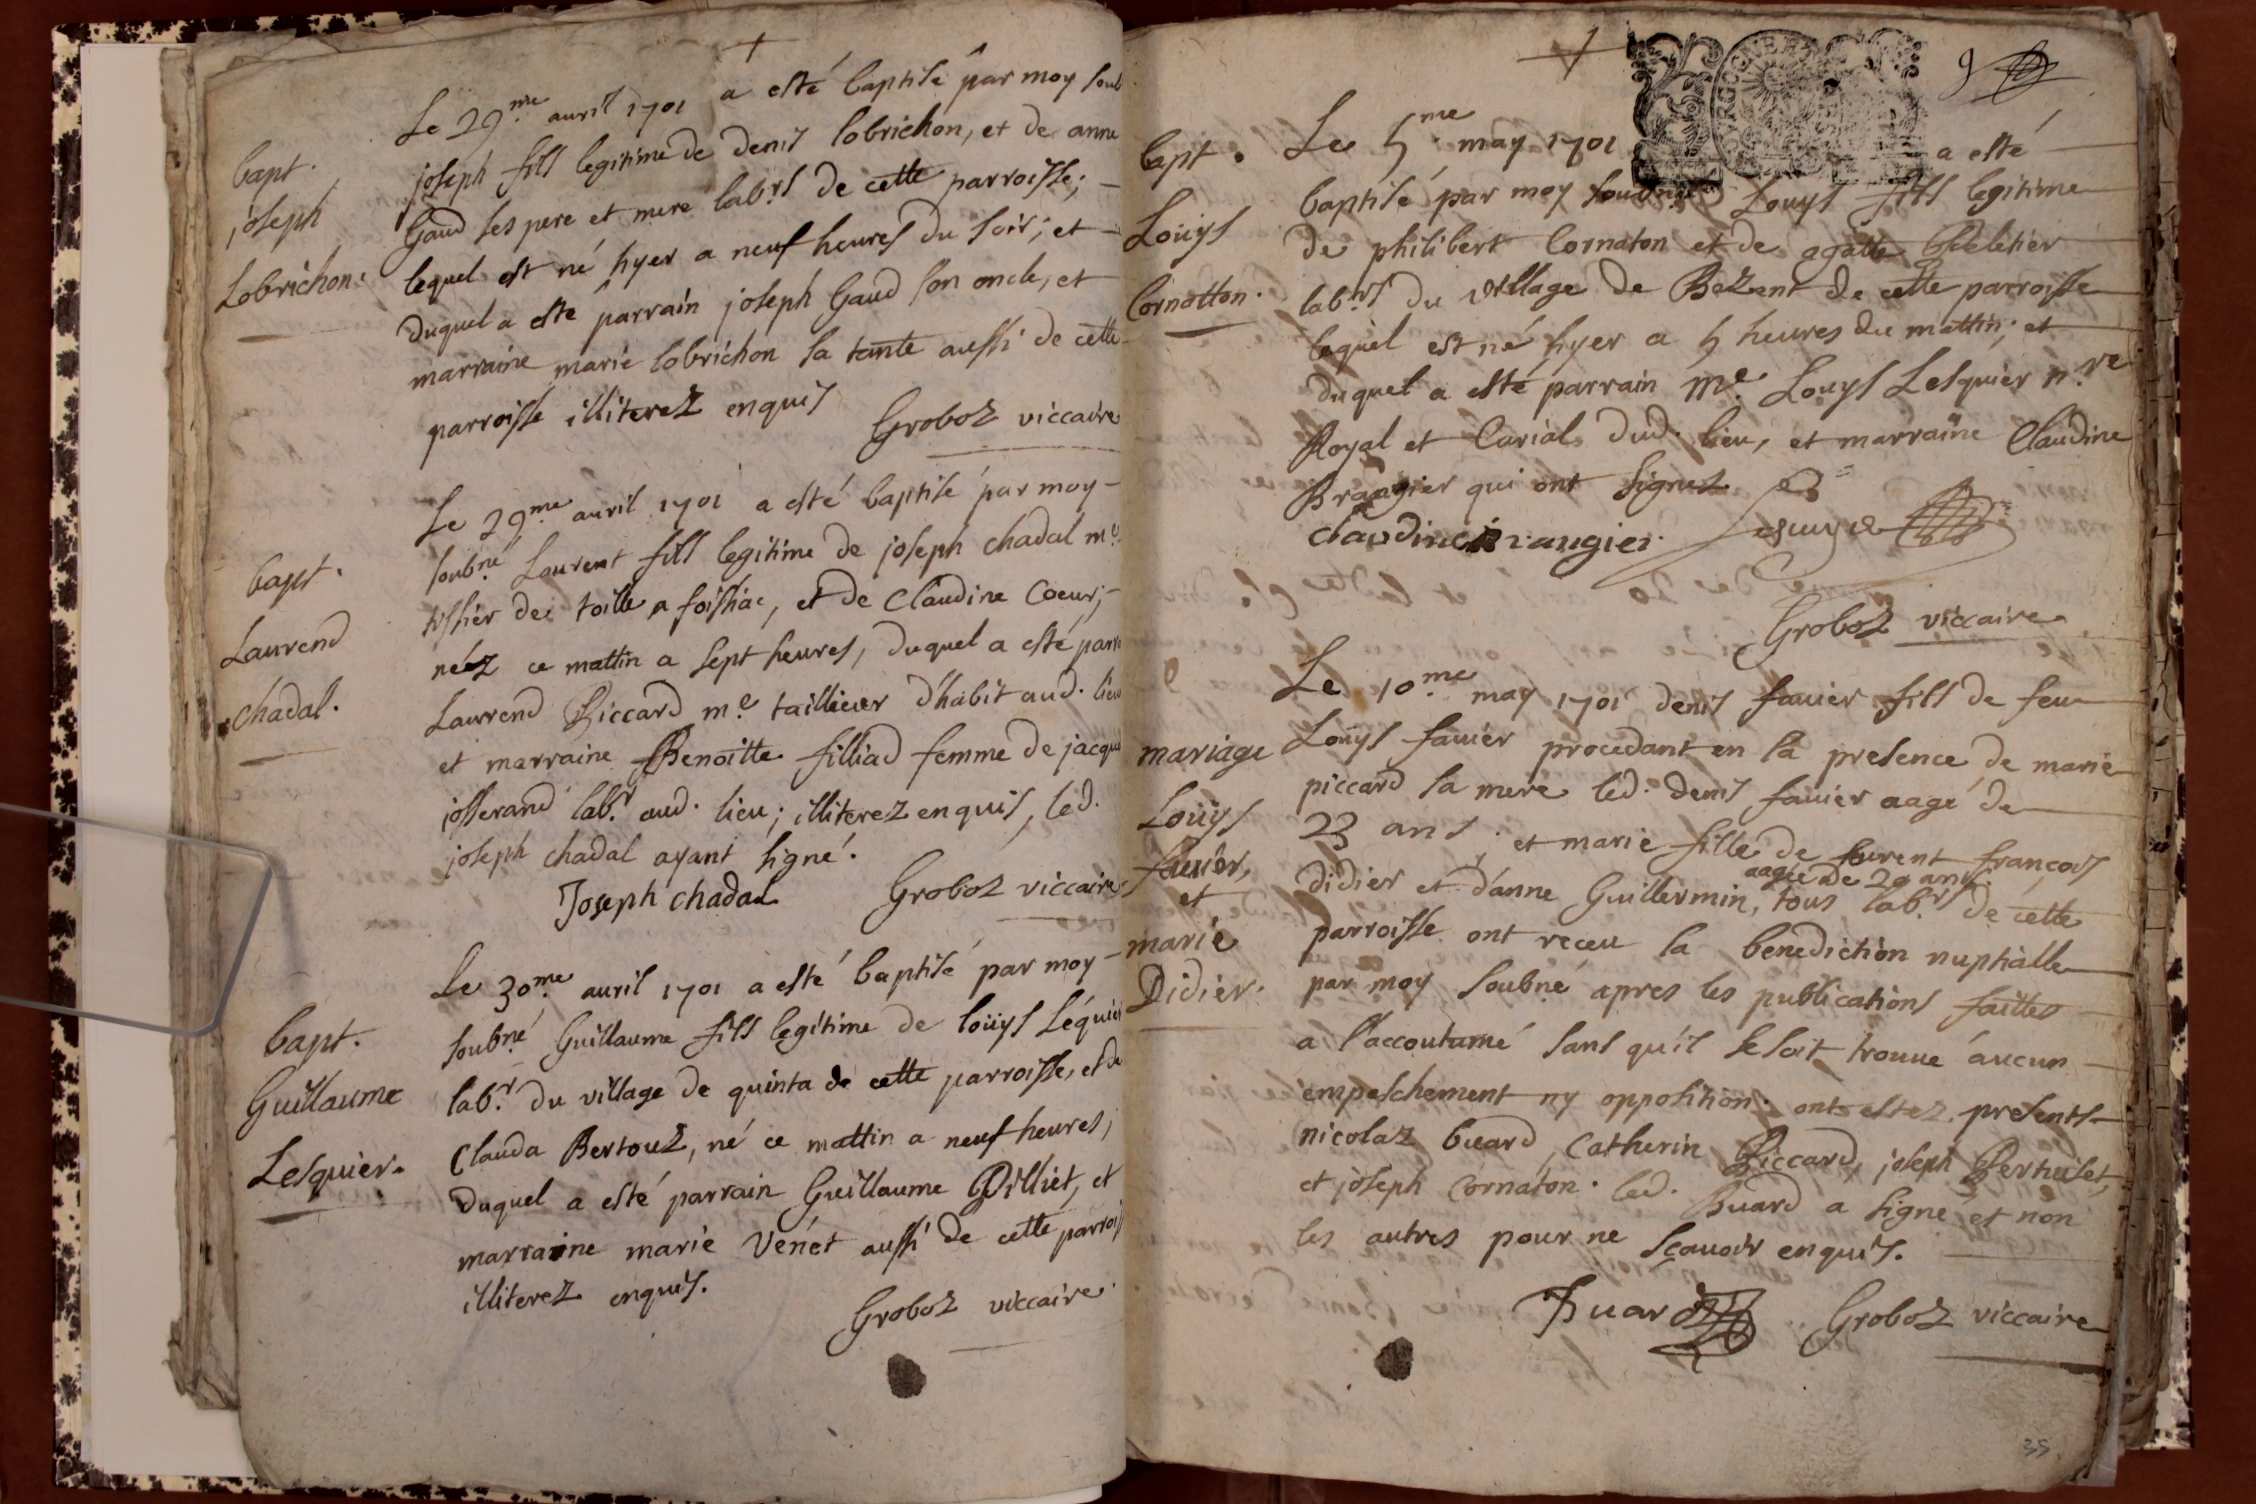 Le 29.me auril 1701 a esté baptisé par moy soub
bapt.
joseph
Lobrichon.
joseph fils legitime de denis lobrichon, et de anne
Gaud ses pere et mere lab.rs de cette parroisse;
lequel est né hyer a neuf heures du soir; et
duquel a esté parrain joseph Gaud son oncle, et
marraine marie lobrichon sa tante aussi de cette
parroisse illiterez enquis
Groboz viccaire
bapt.
Laurend
chadal.
Le 29.me auril 1701 a esté baptisé par moy
soub.né Laurent fils legitime de joseph chadal m.e
tissier de toille a foissiac, et de Claudine Coeur;
néez ce mattin a sept heures, duquel a esté parra
Laurend Piccard m.e taillieur d'habit aud. lieu
et marraine Benoitte filliad femme de jacque
josserand lab.r aud. lieu; illiterez enquis, led.
joseph chadal ayant signé.
Joseph chadal
Groboz viccaire
bapt.
Guillaume
Lesquier.
Le 30.me auril 1701 a esté baptisé par moy
soub.né Guillaume fils legitime de loüys Léquier
lab.r du village de quinta de cette parroisse, et de
Clauda Bertouz, né ce mattin a neuf heures;
duquel a esté parrain Guillaume Pilliet, et
marraine marie Vénet aussi de cette parrois
illiterez enquis.
Groboz viccaire.
9
bapt.
Loüys
Cornatton.
Le 5.me may 1701 a esté
baptisé par moy Louys fils legitime
de philibert Cornaton et de agatte Peletier
lab.rs du village de Bezent de cette parroisse
lequel est né hyer a 5 heures du mattin; et
duquel a esté parrain M.e Louys Lesquier n.re
Royal et Curial dud. lieu, et marraine Claudine
Brangier qui ont signez
claudine Brangier.
Groboz viccaire.
mariage
Loüys
fauier,
et
marie
Didier.
Le 10.me may 1701 denis fauier fils de feu
Loüys fauier procedant en la presence de marie
piccard sa mere led. denis fauier aagé de
23 ans; et marie fille de laurent françois
aagée de 20 ans
didier et d'anne Guillermin, tous lab.rs de cette
parroisse ont receu la benediction nuptialle
par moy soubné apres les publications faittes
a l'accoutumé sans qu'il se soit trouué aucun
empeschement ny opposition. ont estez presents
nicolaz buard, Catherin Piccard, joseph Perthuiset,
et joseph Cornaton. led. Buard a signé, et non
les autres pour ne sçauoir enquis.
Buard
Groboz viccaire
35.